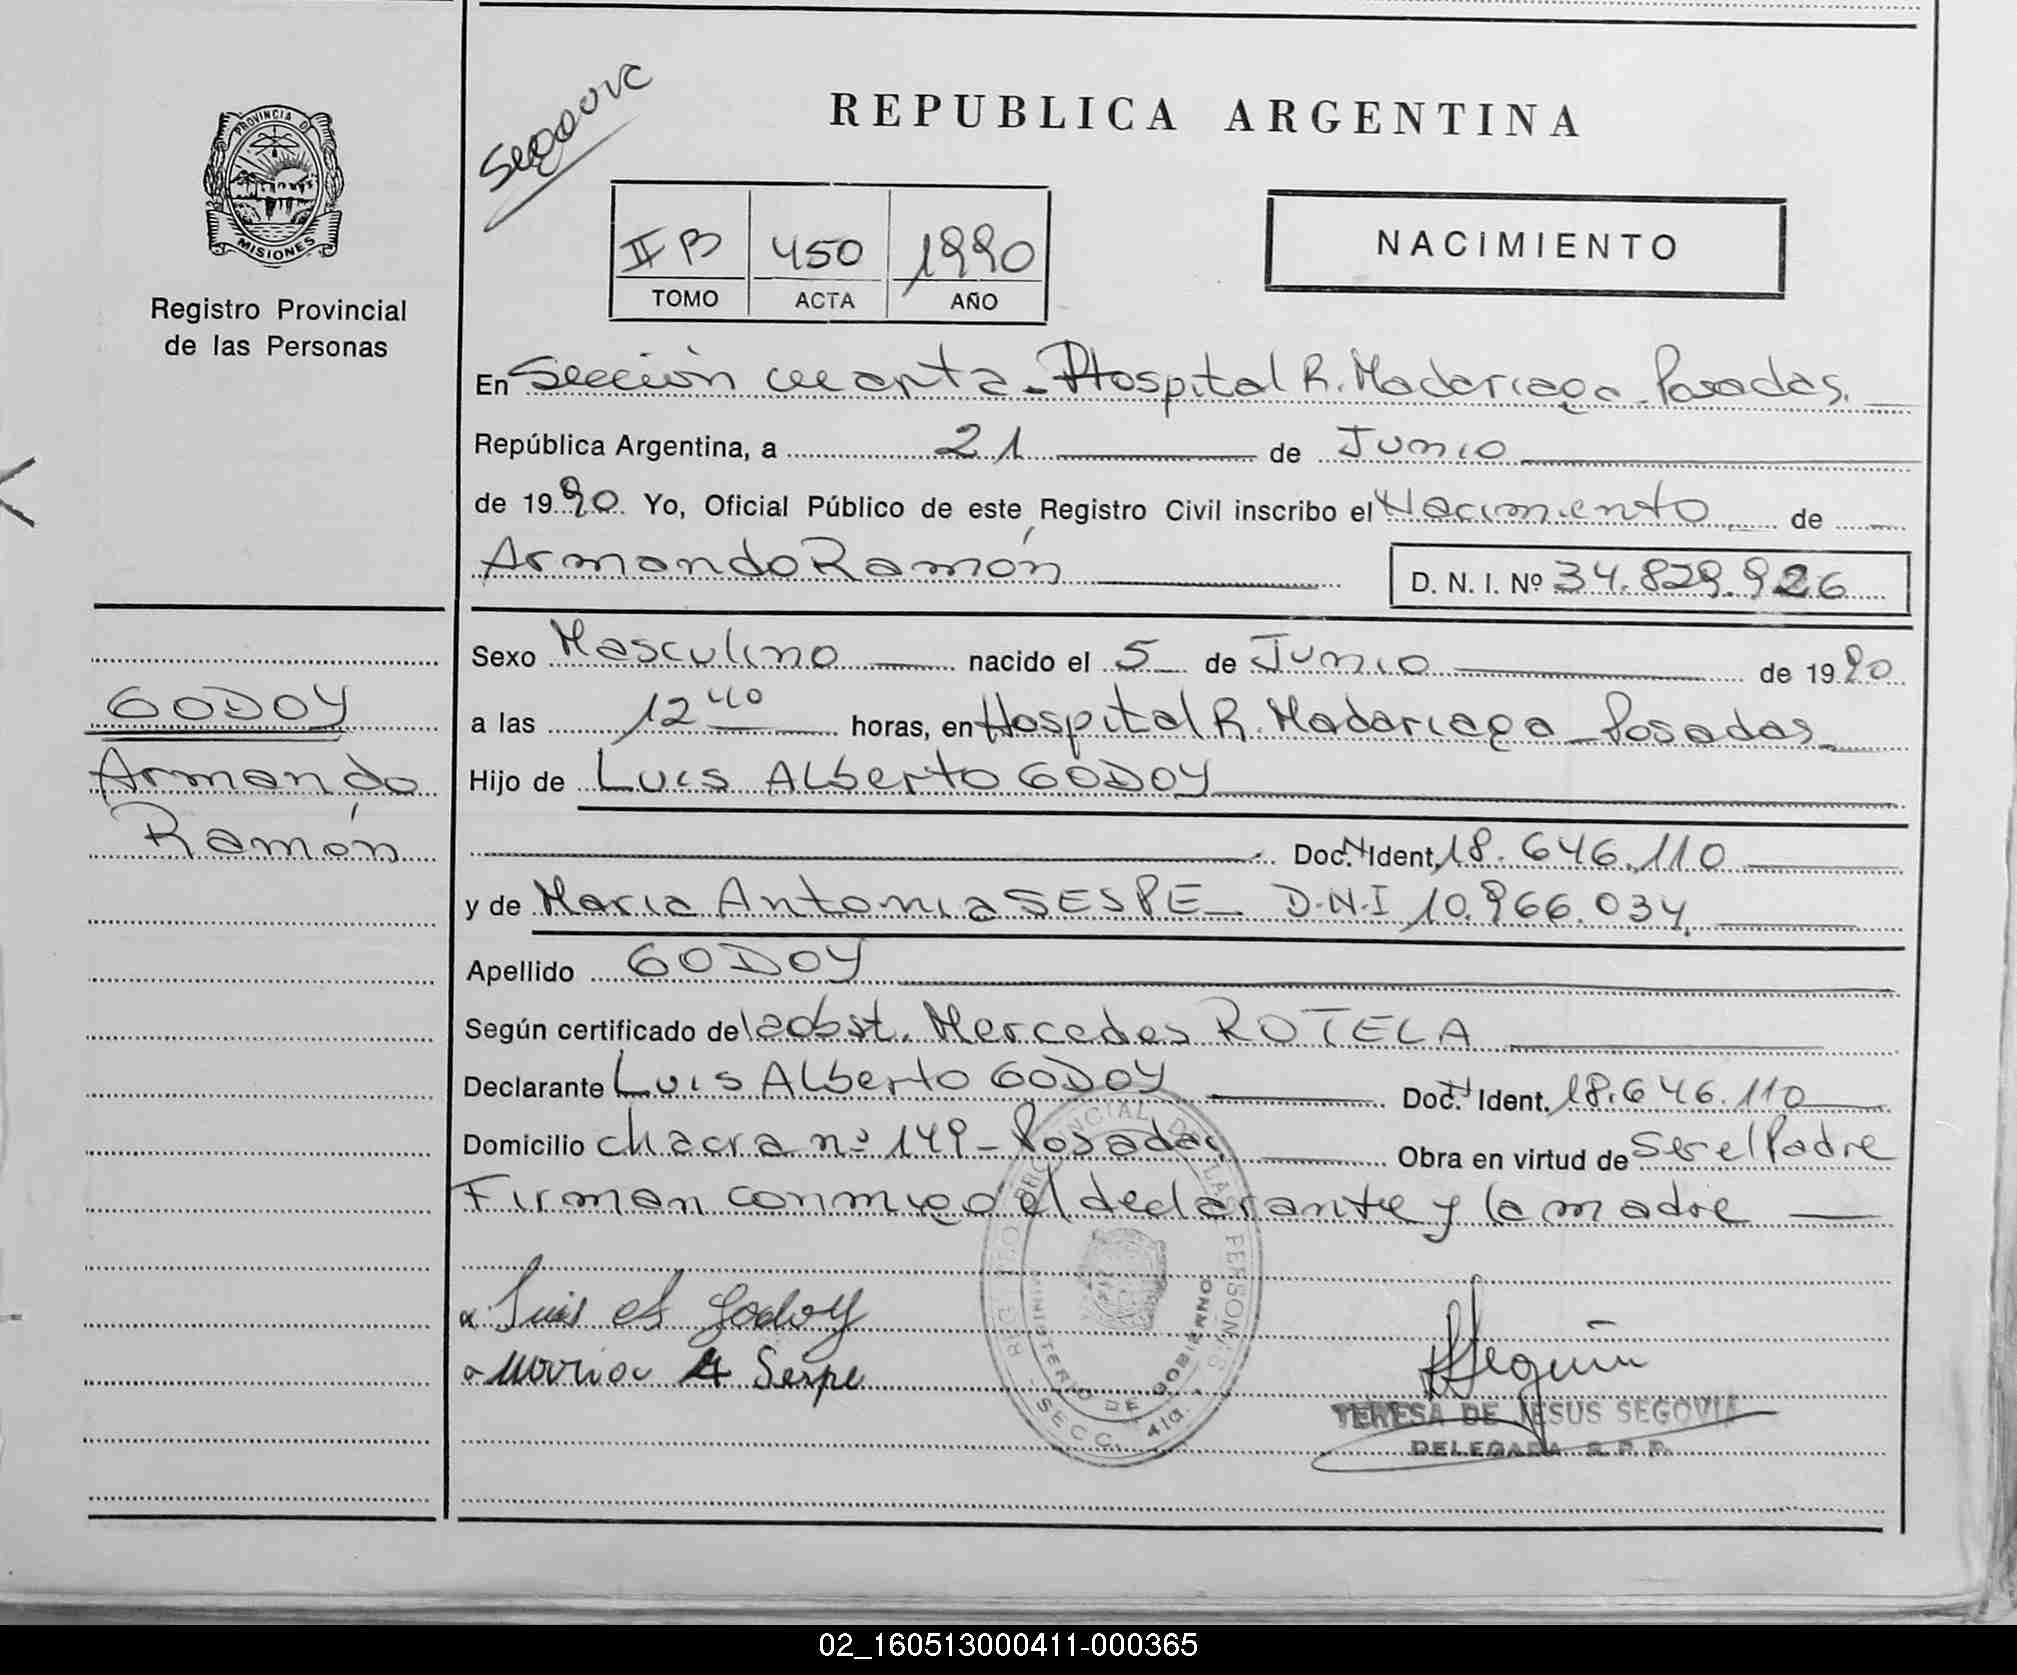 Segovia
REPUBLICA ARGENTINA
PROVINCIA D
MISIONES
Registro Provincial
de las Personas
II B 450 1990
TOMO ACTA AÑO
NACIMIENTO
En Sección cuarta - Hospital R. Madariaga - Posadas.
República Argentina, a 21 de Junio
de 1990. Yo, Oficial Público de este Registro Civil inscribo el Nacimiento de
Armando Ramón D. N. I. Nº 34.829.926
Sexo Masculino nacido el 5 de Junio de 1990
a las 12 40 horas, en Hospital R. Madariaga - Posadas -
Hijo de Luis Alberto GODOY
Doc. Ident. 18.646.110
y de Maria Antonia SESPE - D.N.I 10.966.034.
Apellido GODOY
Según certificado de la obst. Mercedes ROTELA
Declarante Luis Alberto GODOY Doc. Ident. 18.646.110
Domicilio chacra nº 149 - Posadas Obra en virtud de Ser el Padre
Firman conmigo el declarante y la madre
GODOY
Armando
Ramón
Luis A Godoy
Maria A Sespe
REGISTRO PROVINCIAL DE LAS PERSONAS
MINISTERIO DE GOBIERNO
- SECC. 4ta. -
TERESA DE JESUS SEGOVIA
DELEGADA R. P. P.
02_160513000411-000365